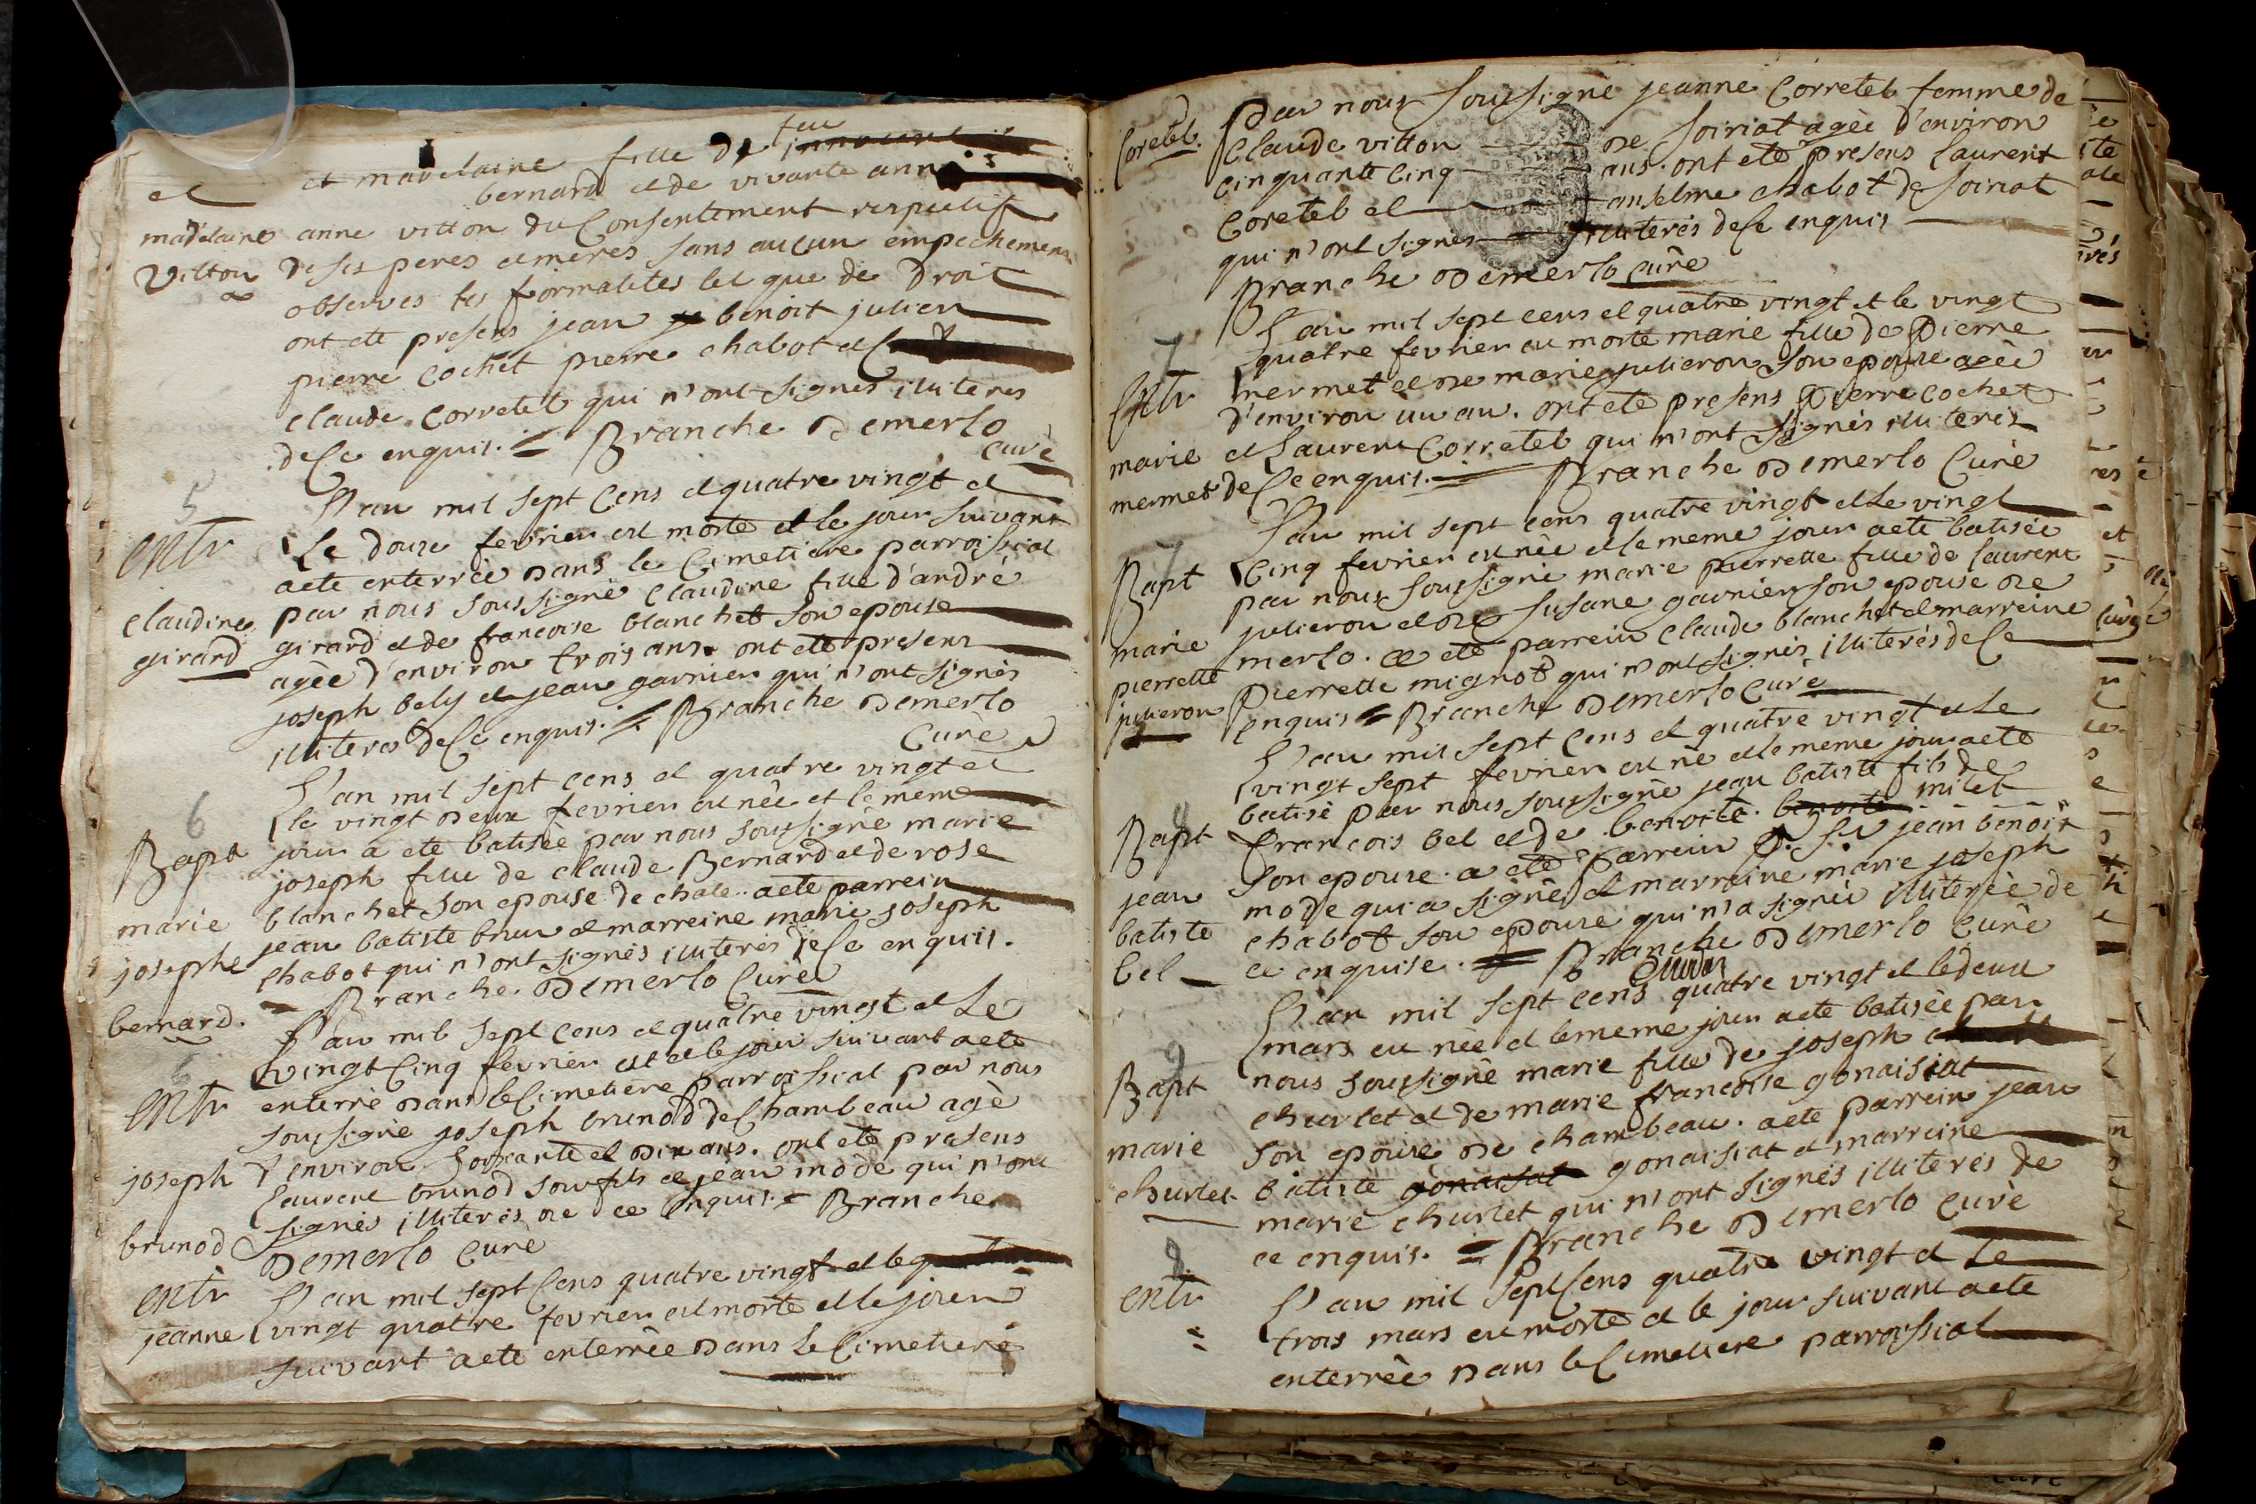 feu
et et madelaine fille de
bernard et de vivante anne
madelaine anne vitton du Consentement respectif
Vitton de ses peres et meres sans aucun empechement
observes les formalites tel que de Droit
ont ete presens jean benoit julien
pierre cochet pierre chabot et
claude Corretel qui n'ont signes illiteres
de Ce enquis. = Branche Demerlo
Curè
5
L'an mil sept Cens et quatre vingt et
entr Le douze fevrier est morte et le jour suivant
aete enterrèe Dans le Cimetiere parroissial
par nous soussignè Claudine fille d'andrè
claudine girard et de francoise blanchet son epouse
girard agèe d'environ trois ans. ont ete presens
joseph bely et jean garnier qui n'ont signès
illiteres de Ce enquis. = Branche Demerlo
Curè
6
L'an mil sept cens et quatre vingt et
le vingt Deux fevrier est nèe et le meme
Bapt jour a ete batisèe par nous soussignè marie
joseph fille de claude Bernard et de rose
marie blanchet son epouse de chale. aete parrein
josephe jean batiste brun et marreine marie joseph
chabot qui n'ont signès illiterès de Ce enquis.
bernard. = Branche Demerlo Curè
6
L'an mil sept cens et quatre vingt et Le
vingt Cinq fevrier est et le jour suivant aete
entr enterrè Dans le Cimetiere parroissial par nous
soussignè joseph brunod de Chambeau agè
joseph d'environ soixante et Dix ans. ont ete presens
Laurent brunod son fils et jean mode qui n'ont
signès illiterès De Ce enquis = Branche
brunod Demerlo Curè
entr L'an mil sept Cens quatre vingt et le
jeanne vingt quatre fevrier est morte et le jour
suivant aete enterrèe Dans Le Cimetiere
Coretel. par nous soussignè jeanne Corretel femme de
Claude vitton De soiriat agèe d'environ
cinquante Cinq ans. ont etè presens Laurent
Coretel et anselme chabot de soiriat
qui n'ont signès illiterès de Ce enquis
Branche Demerlo Curè
7
L'an mil sept cens et quatre vingt et le vingt
quatre fevrier est morte marie fille de Pierre
entr mermet et De marie julieron son epouse agèe
d'environ un an. ont etè presens Pierre cochet
marie et Laurent Corretel qui n'ont signès illiterès
mermet de Ce enquis. = Branche Demerlo Curè
7
L'an mil sept cens quatre vingt et Le vingt
Bapt Cinq fevrier est nèe et le meme jour aete batisèe
par nous soussignè marie pierrette fille de laurent
julieron et De susane garnier son epouse De
marie merlo. a etè parrein claude blanchet et marreine
pierrette Pierrette mignot qui n'ont signès illiterès de Ce
julieron enquis = Branche Demerlo Curè
L'an mil sept Cens et quatre vingt et Le
vingt sept fevrier est nè et le meme jour aete
8
batisè par nous soussignè jean batiste fils de
Bapt francois bel et de benoite. benoite milet
son epouse. a etè Parrein jean benoit
jean mode qui a signè, et marreine marie joseph
batiste chabot son epouse qui n'a signèe illiterèe de
bel ce enquise. = Branche Demerlo Curè
L'an mil sept cens quatre vingt et le deux
9
mars est nèe et le meme jour aete batisèe par
Bapt nous soussignè marie fille de joseph
churlet et de marie francoise gonaisiat
marie son epouse De chambeau. aete parrein jean
churlet batiste gonaisat gonaisiat et marreine
marie churlet qui n'ont signès illiterès de
ce enquis. = Branche Demerlo Curè
8
entr L'an mil sept Cens quatre vingt et Le
trois mars est morte et le jour suivant aete
enterrèe Dans le Cimetiere parroissial